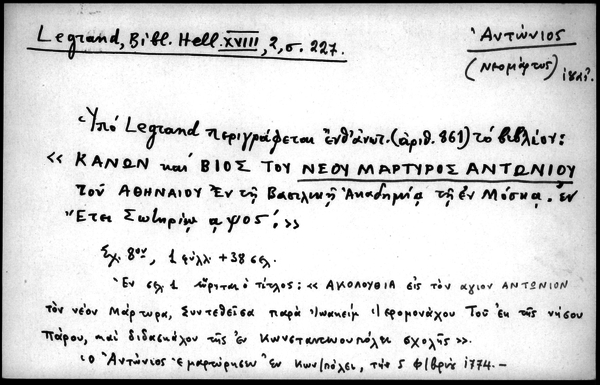 Legrand, Bibl. Hell. XVIII, 2, σ. 227.
Ἀντώνιος
(νεομάρτυς)
Ὑπό Legrand περιγράφεται ἔνθ' ἀνωτ. (ἀριθ. 861) τό βιβλίον:
« ΚΑΝΩΝ καί ΒΙΟΣ ΤΟΥ ΝΕΟΥ ΜΑΡΤΥΡΟΣ ΑΝΤΩΝΙΟΥ
τοῦ ΑΘΗΝΑΙΟΥ Ἐν τῇ Βασιλικῇ Ἀκαδημίᾳ τῇ ἐν Μόσχᾳ. ἐν
Ἔτει Σωτηρίῳ αψοϛ΄. »
Σχ. 8ον, 1 φύλλ. + 38 σελ.
Ἐν σελ. 1 εὕρηται ὁ τίτλος: « ΑΚΟΛΟΥΘΙΑ εἰς τὸν ἅγιον ΑΝΤΩΝΙΟΝ
τὸν νέον Μάρτυρα, Συντεθεῖσα παρὰ Ἰωακεὶμ Ἱερομονάχου Τοῦ ἐκ τῆς νήσου
Πάρου, καὶ διδασκάλου τῆς ἐν Κωνσταντινουπόλει σχολῆς ».
Ὁ Ἀντώνιος ἐμαρτύρησεν ἐν Κων/πόλει, τῇ 5 Φ/βρίου 1774. –